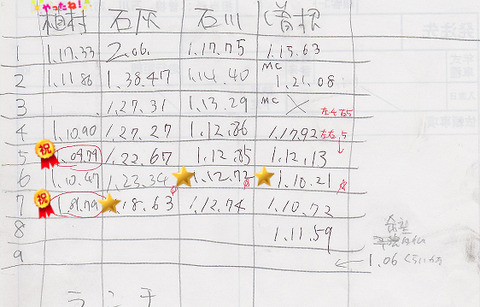 やったね!
植村 石灰 石川 曽根
1 1.17.33 2.00. 1.17.75 1.15.63
2 1.11.86 1.38.47 1.14.40 MC 1.21.08
3 1.27.31 1.13.29 MC ×
4 1.10.90 1.27.27 1.12.86 1.17.92
5 祝 1.09.79 1.22.67 1.12.85 1.12.13
6 1.10.47 1.23.34 1.12.72 1.10.21
7 祝 1.18.63 1.12.74 1.10.72
8 1.11.59
9 1.06くらいか
ランチ